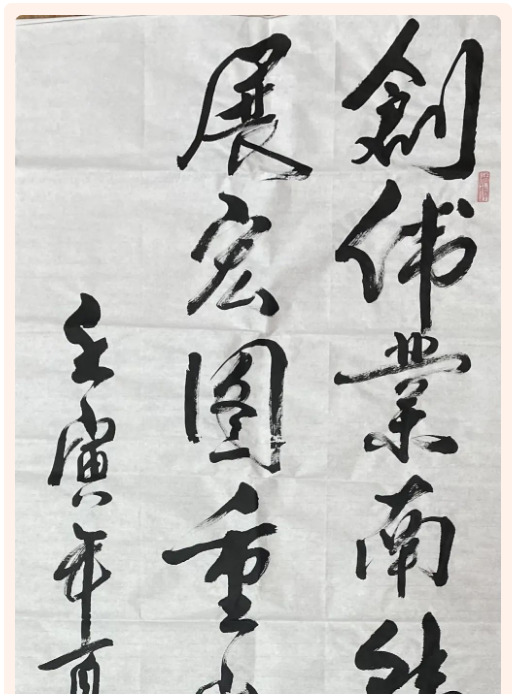 創伟業南
展宏图重
壬寅年